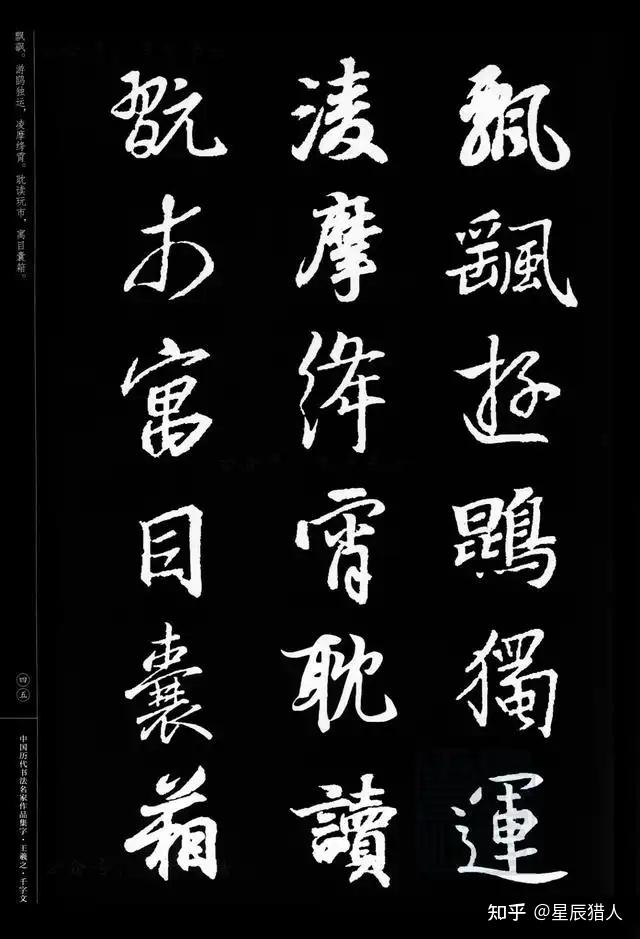 飄颻遊鵾獨運
淩摩絳霄耽讀
翫市寓目囊箱
飘飖。游鹍独运，凌摩绛霄。耽读玩市，寓目囊箱。
四五
中国历代书法名家作品集字·王羲之·千字文
知乎 @星辰猎人